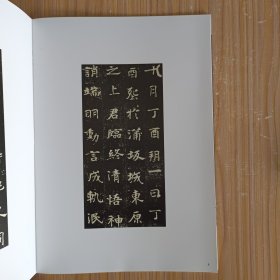 九月丁酉朔一日丁
酉葬於蒲坂城東原
之上君臨終清悟神
誚端明動言成軌泯